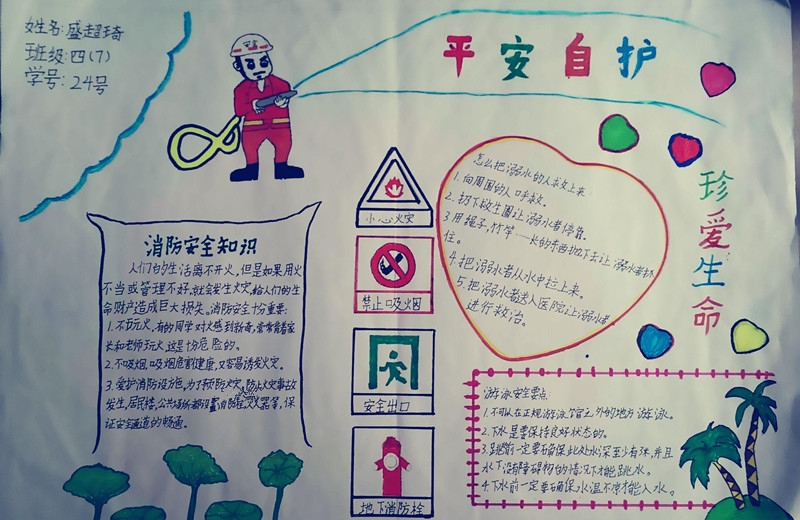 姓名:盛超琦
班级:四(7)
学号:24号
平安自护
珍爱生命
消防安全知识
人们的生活离不开火,但是如果用火
不当或管理不好,就会发生火灾,给人们的生
命财产造成巨大损失。消防安全十分重要:
1.不玩火,有的同学对火感到好奇,常常背着家
长和老师玩火,这是十分危险的。
2.不吸烟,吸烟危害健康,又容易诱发火灾。
3.爱护消防设施,为了预防火灾,防止火灾事故
发生,居民楼,公共场所都设置消防栓,灭火器等,保
证安全通道的畅通。
小心火灾
禁止吸烟
安全出口
地下消防栓
怎么把溺水的人救上来
1.向周围的人呼救。
2.扔下救生圈让溺水者停靠。
3.用绳子,竹竿……长的东西抛下去让溺水者抓
住。
4.把溺水者从水中拉上来。
5.把溺水者送入医院让溺水者
进行救治。
游泳安全要点:
1.不可以在正规游泳馆之外的地方游泳。
2.下水是要保持良好状态的。
3.跳前一定要确保此处水深至少有 并且
水下没有障碍物的情况下才能跳水。
4.下水前一定要确保水温不凉才能入水。